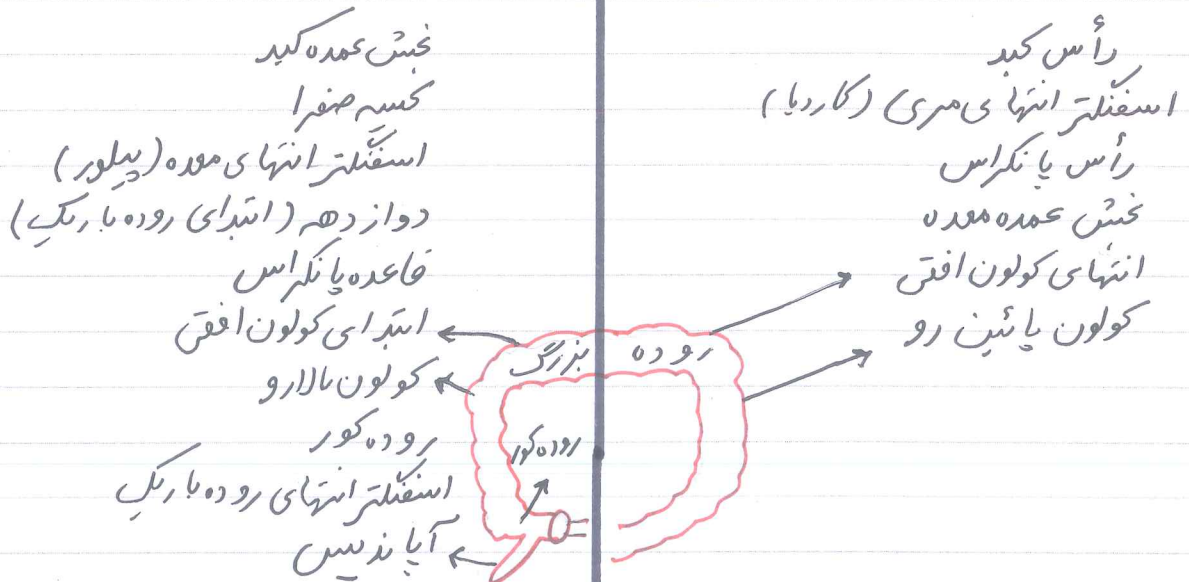 رأس کبد
اسفنکتر انتهای مری (کاردیا)
رأس پانکراس
بخش عمده معده
انتهای کولون افقی
کولون پائین رو
بخش عمده کبد
کیسه صفرا
اسفنکتر انتهای معده (پیلور)
دوازدهه (ابتدای روده باریک)
قاعده پانکراس
ابتدای کولون افقی
کولون بالارو
روده کور
اسفنکتر انتهای روده باریک
آپاندیس
روده بزرگ
روده کور